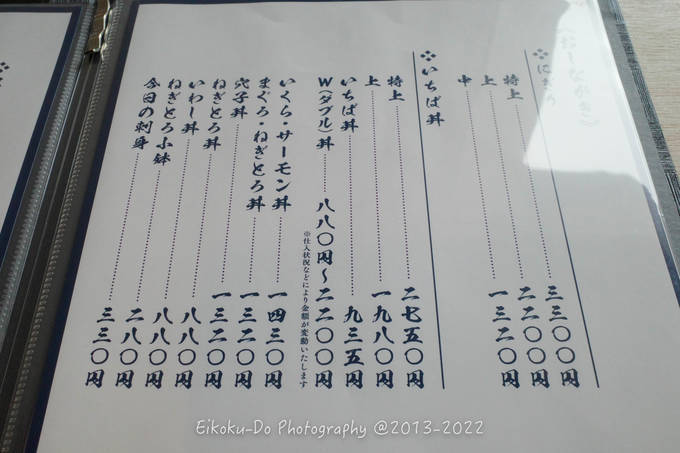 おしながき
にぎり
特上 三三〇〇円
上 二二〇〇円
中 一三二〇円
いちば丼
特上 二七五〇円
上 一九八〇円
いちば丼 九三五円
W(ダブル)丼 八八〇円〜二二〇〇円
※仕入状況などにより金額が変動いたします
いくら・サーモン丼 一四三〇円
まぐろ・ねぎとろ丼 一三二〇円
穴子丼 一三二〇円
ねぎとろ丼 八八〇円
いわし丼 八八〇円
ねぎとろ小鉢 二八〇円
今日の刺身 三三〇円
Eikoku-Do Photography @2013-2022